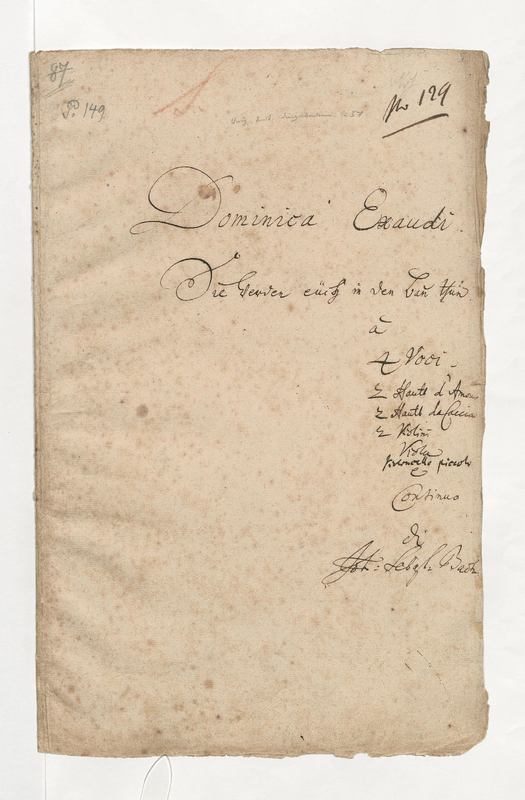 87
P. 149
No 129
Dominica Exaudi.
Sie werden eüch in den Ban thun
à
4 Voci.
2 Hautb d'Amour
2 Hautb da Caccia
2 Violini
Viola
Violoncello piccolo
e
Continuo
di
Joh: Sebast: Bach